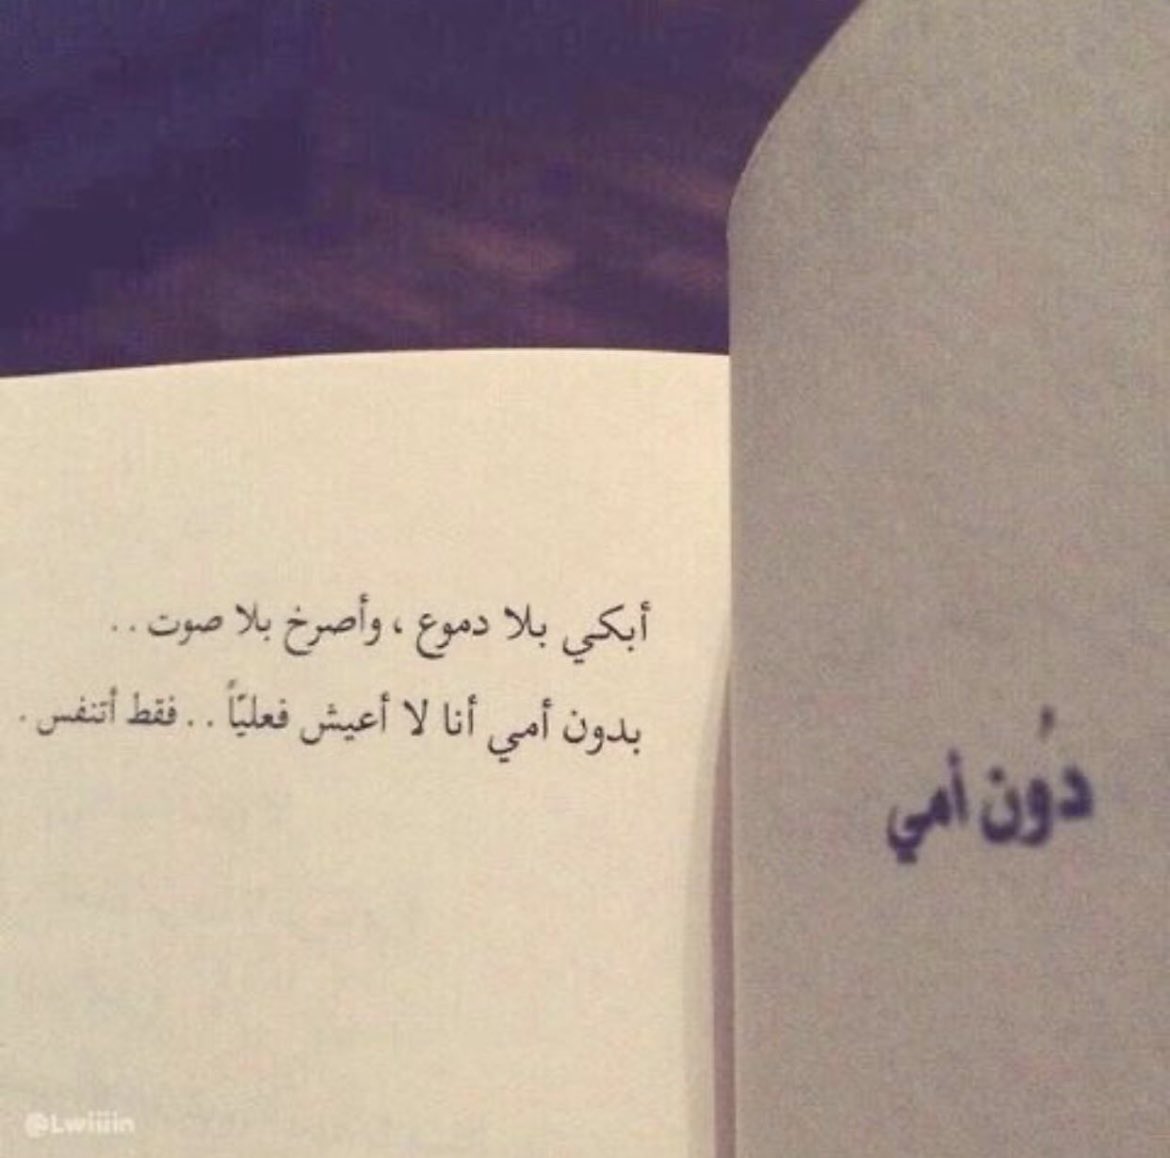 دُون أمي
أبكي بلا دموع ، وأصرخ بلا صوت . .
بدون أمي أنا لا أعيش فعليّاً . . فقط أتنفس .
@Lwiiiin